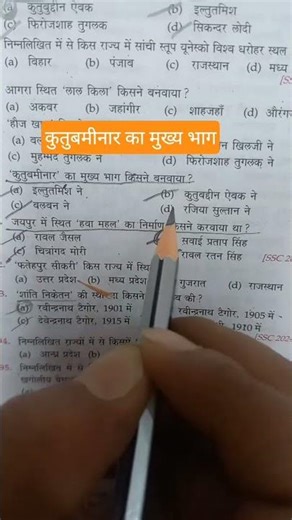 (a) कुतुबुद्दीन ऐबक (b) इल्तुतमिश
(c) फिरोजशाह तुगलक (d) सिकन्दर लोदी
निम्नलिखित में से किस राज्य में सांची स्तूप यूनेस्को विश्व धरोहर स्थल
(a) बिहार (b) पंजाब (c) राजस्थान (d) मध्य
आगरा स्थित 'लाल किला' किसने बनवाया?
(a) अकबर (b) जहांगीर (c) शाहजहाँ (d) औरंग
'हौज खा
कुतुबमीनार का मुख्य भाग
खिलजी ने
(c) मुहम्मद तुगलक ने (d) फिरोजशाह तुगलक ने
'कुतुबमीनार' का मुख्य भाग किसने बनवाया?
(a) इल्तुतमिश ने (b) कुतुबद्दीन ऐबक ने
(c) बलवन ने (d) रजिया सुल्तान ने
जयपुर में स्थित 'हवा महल' का निर्माण किसने करवाया था?
(a) रावल जैसल सवाई प्रताप सिंह
(c) चित्रांगद मोरी रावल रतन सिंह
'फतेहपुर सीकरी' किस राज्य में स्थि [SSC
(a) उत्तर प्रदेश (b) मध्य प्रदेश गुजरात (d) राजस्थान
'शांति निकेतन' की स्थापना किसने व की?
(a) रवीन्द्रनाथ टैगोर, 1901 में रवीन्द्रनाथ टैगोर, 1905 में
(c) देवेन्द्रनाथ टैगोर, 1915 में 1910 में
94. निम्नलिखित में से किस [SSC 202
(a) आन्ध्र प्रदेश (b)
95. निम्नलिखित में से